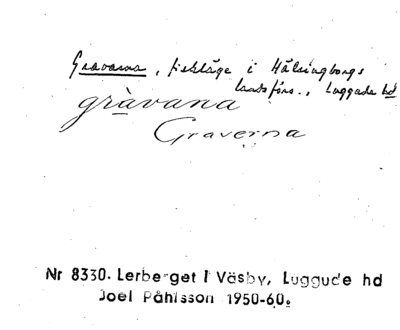 Gravarna, fiskläge i Hälsingborgs
landsförs., Luggude hd
gràvana
Graverna
Nr 8330. Lerberget i Väsby, Luggude hd
Joel Påhlsson 1950-60.